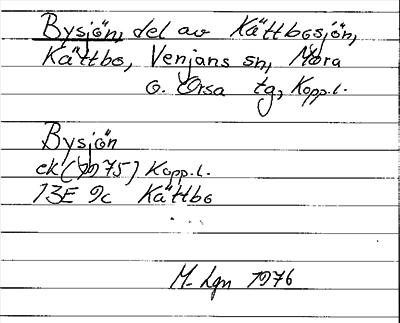 Bysjön, del av Kättbosjön,
Kättbo, Venjans sn, Mora
o. Orsa tg, Kopp.l.
Bysjön
ek (1975) Kopp.l.
13E 9c Kättbo
M-Lgn 1976